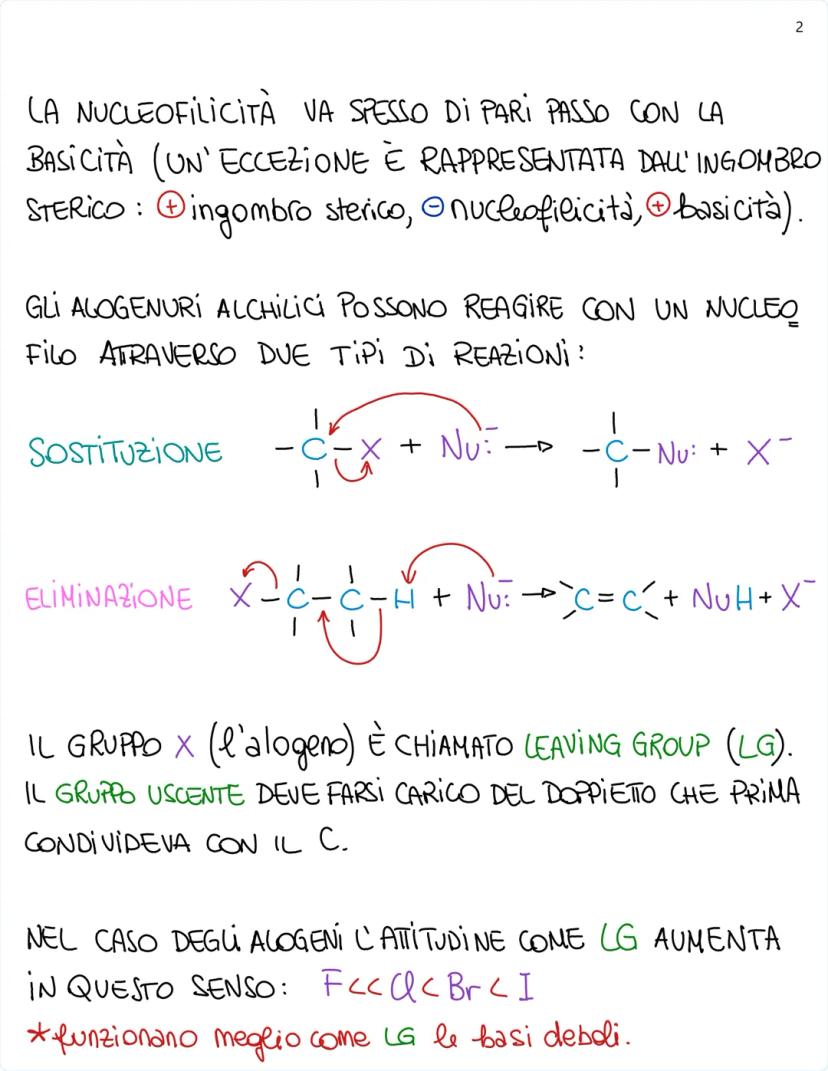 2
LA NUCLEOFILICITÀ VA SPESSO DI PARI PASSO CON LA
BASICITÀ (UN' ECCEZIONE È RAPPRESENTATA DALL'INGOMBRO
STERICO : ⊕ingombro sterico, ⊖nucleofilicità, ⊕basicità).
GLI ALOGENURI ALCHILICI POSSONO REAGIRE CON UN NUCLEO
FILO ATTRAVERSO DUE TIPI DI REAZIONI:
SOSTITUZIONE -C-X + Nu:⁻ → -C-Nu: + X⁻
ELIMINAZIONE X-C-C-H + Nu:⁻ → C=C + NuH + X⁻
IL GRUPPO X (l'alogeno) È CHIAMATO LEAVING GROUP (LG).
IL GRUPPO USCENTE DEVE FARSI CARICO DEL DOPPIETTO CHE PRIMA
CONDIVIDEVA CON IL C.
NEL CASO DEGLI ALOGENI L'ATTITUDINE COME LG AUMENTA
IN QUESTO SENSO: F<<Cl<Br<I
*funzionano meglio come LG le basi deboli.